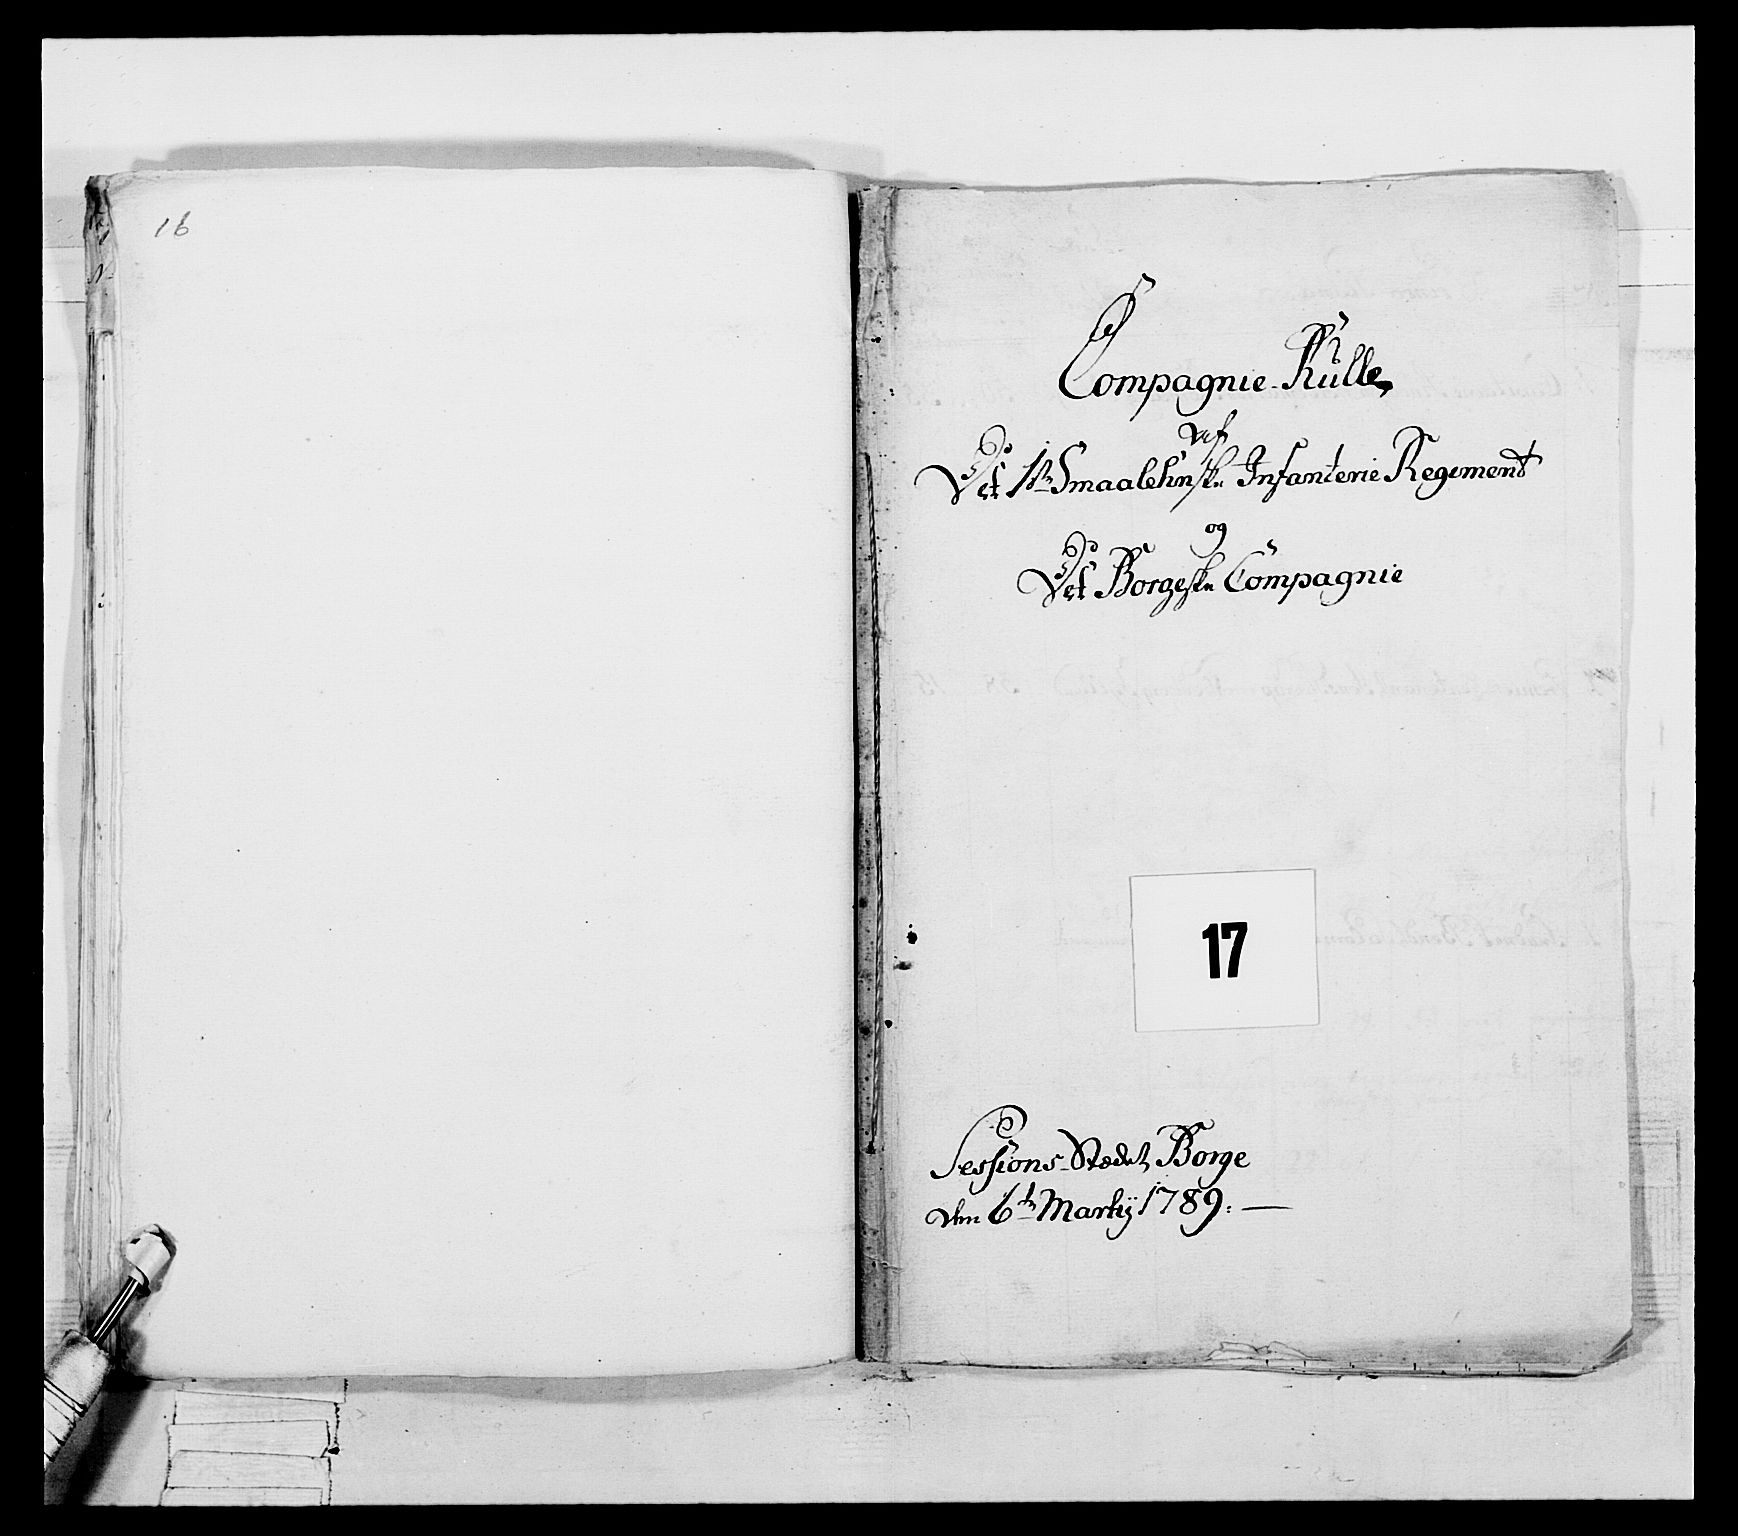 16
Compagnie-Rulle
ved
Det 1te Smaalehnske Infanterie Regiment
og
Det Borgeske Compagnie
17
Sessions-Stædet Borge
den 6te Martij 1789.